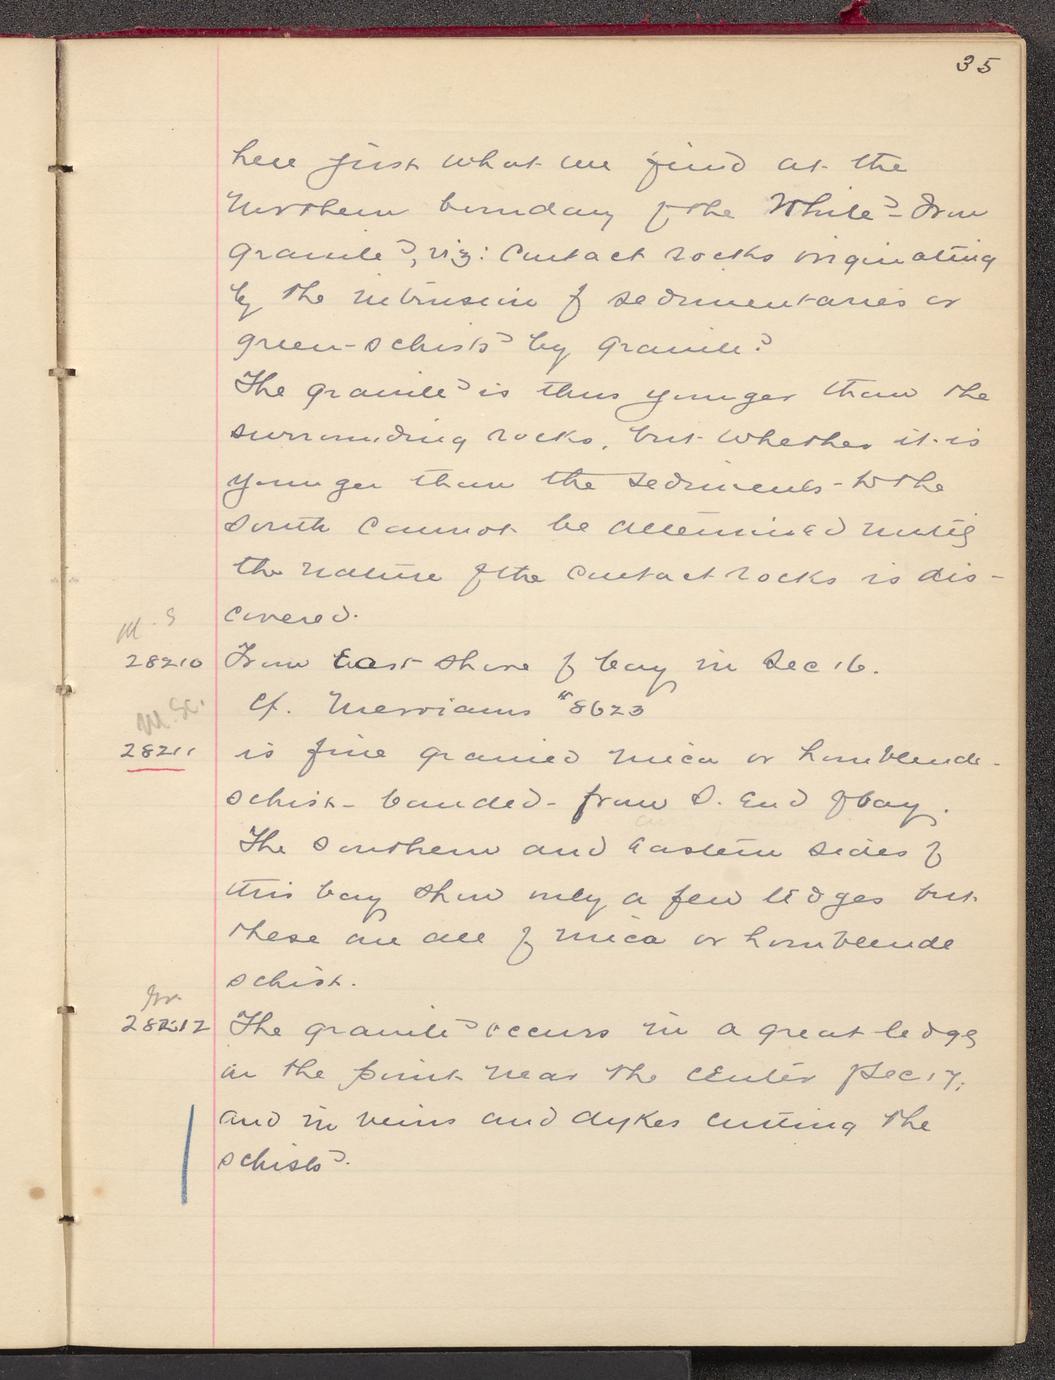 35
here just what we find at the
Northern boundary of the White-Iron
granite, viz: contact rocks originating
by the intrusion of sedimentaries or
green-schists by granite.
The granite is thus younger than the
surrounding rocks, but whether it is
younger than the sediments to the
South cannot be determined until
the nature of the contact rocks is dis-
covered.
M. S
28210 From East shore of bay in Sec 16.
Cf. Merriams #8623
M. Sc.
28211 is fine grained mica or hornblende-
schist - banded - from S. End of bay.
The Southern and Eastern sides of
this bay show only a few ledges but
these are all of mica or hornblende
schist.
Gr.
28212 The granite occurs in a great ledge
on the point near the center Sec 17;
and in veins and dykes cutting the
schists.